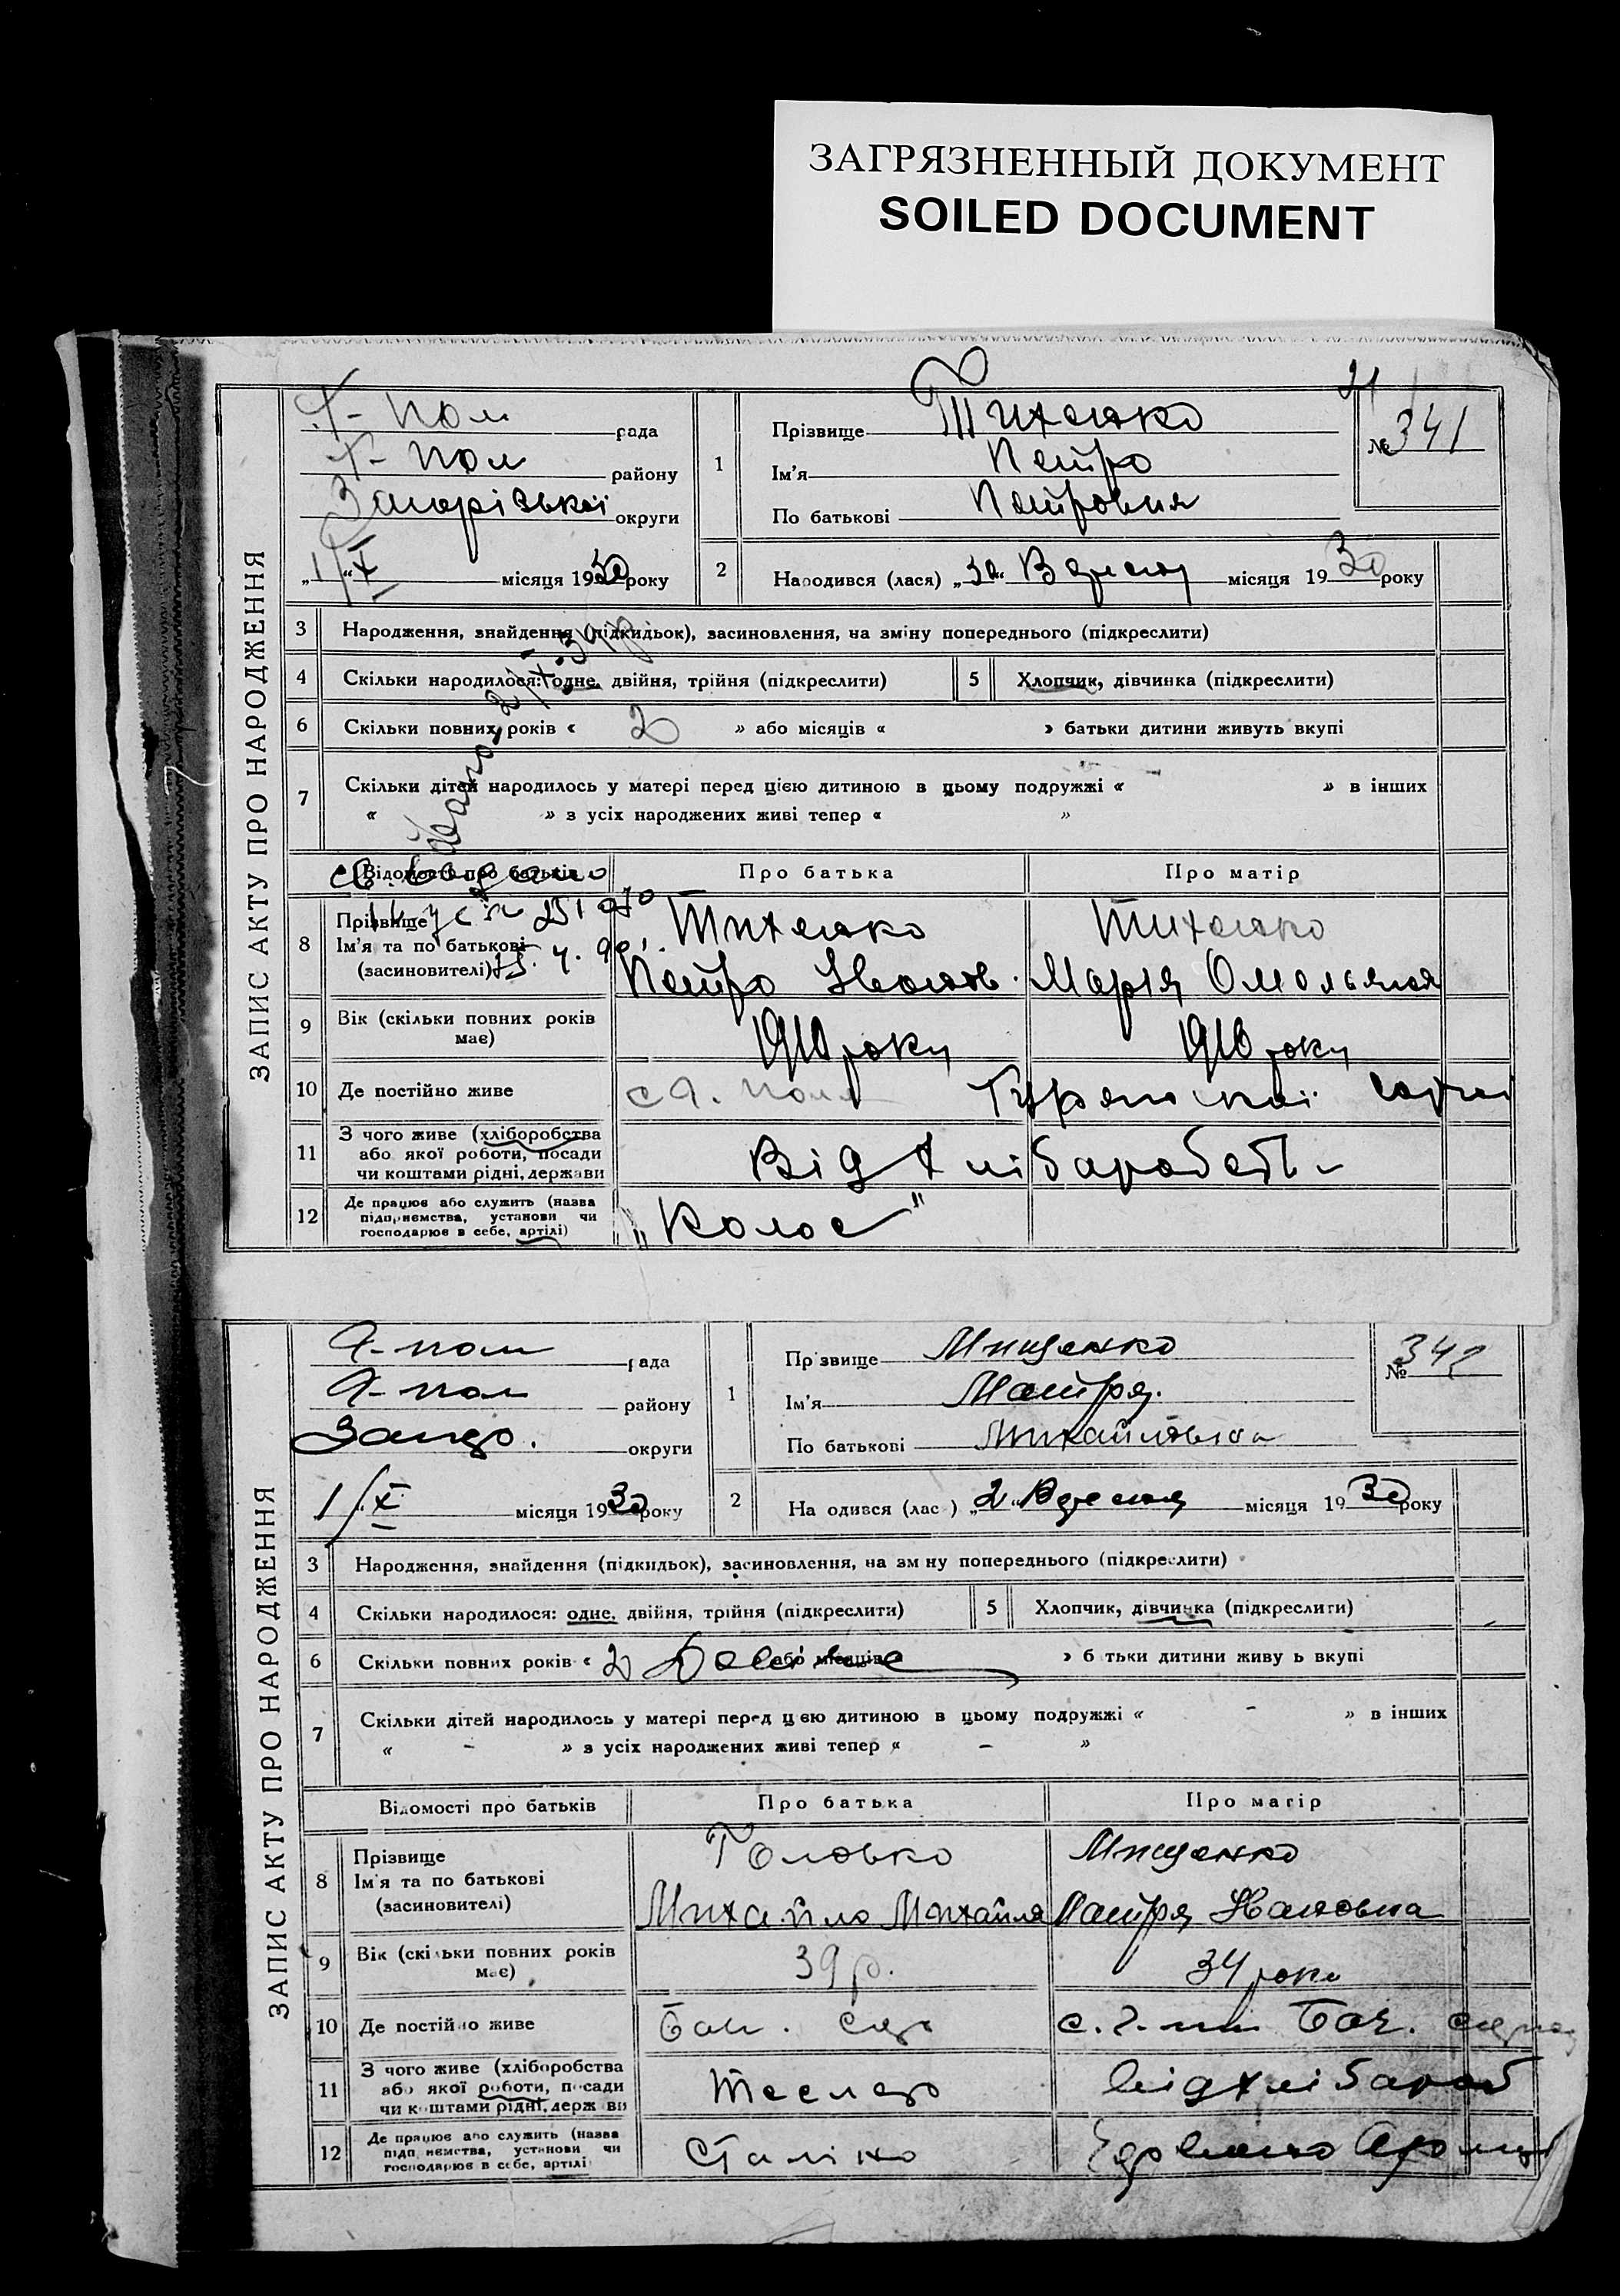 ЗАГРЯЗНЕННЫЙ ДОКУМЕНТ
SOILED DOCUMENT
21
ЗАПИС АКТУ ПРО НАРОДЖЕННЯ
Х-пол рада
Х-пол району
Запорізької округи
„1/“ X місяця 1930 року
1
Прізвище Тихенко
Ім'я Петро
По батькові Петровия
№ 341
2 Народився (лася) „30“ Вересня місяця 1930 року
3 Народження, знайдення (підкидьок), засиновлення, на зміну попереднього (підкреслити)
4 Скільки народилося: одне, двійня, трійня (підкреслити)
5 Хлопчик, дівчинка (підкреслити)
6 Скільки повних років « 2 » або місяців « » батьки дитини живуть вкупі
7 Скільки дітей народилось у матері перед цією дитиною в цьому подружжі « — » в інших
« » з усіх народжених живі тепер « »
Відомості про батьків Про батька Про матір
8 Прізвище
Ім'я та по батькові
(засиновителі)
Тихенко
Петро Іванов.
Тихенко
Марія Омельяноя
9 Вік (скільки повних років має) 1910 року 1910 року
10 Де постійно живе
11 З чого живе (хліборобства
або якої роботи, посади
чи коштами рідні, держави
Від хліборобств
12 Де працює або служить (назва
підприємства, установи чи
господарює в себе, артілі)
„Колос"
ЗАПИС АКТУ ПРО НАРОДЖЕННЯ
Х-пол рада
Х-пол району
Запор. округи
1/X місяця 1930 року
1
Прізвище Мищенко
Ім'я Мотря.
По батькові Михайловна
№ 342
2 На одився (лас ) „2“ Вересня місяця 1930 року
3 Народження, знайдення (підкидьок), засиновлення, на зм ну попереднього (підкреслити)
4 Скільки народилося: одне, двійня, трійня (підкреслити)
5 Хлопчик, дівчинка (підкреслити)
6 Скільки повних років « 2 або місяців » б тьки дитини живу ь вкупі
7 Скільки дітей народилось у матері перед цією дитиною в цьому подружжі « - » в інших
« - » з усіх народжених живі тепер « - »
Відомості про батьків Про батька Про матір
8 Прізвище
Ім'я та по батькові
(засиновителі)
Головко
Михайло Михайло
Мищенко
Мотря Івановна
9 Вік (скільки повних років має) 39 р. 34 роки
10 Де постійно живе
11 З чого живе (хліборобства
або якої роботи, посади
чи коштами рідні, держ ви
Тесляр
від хлібороб
12 Де працює або служить (назва
підп иємства, установи чи
господарює в себе, артілі